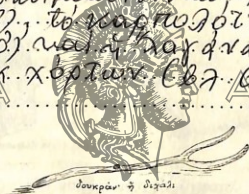 το καρπολό
και ἡ λαγάν
χόρτων (βλ.
δουκράν' ἢ διχάλι